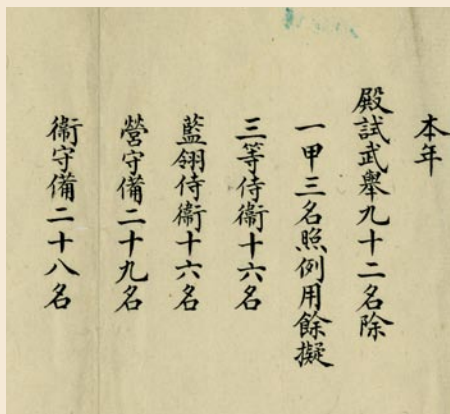 本年
殿試武舉九十二名除
一甲三名照例用餘擬
三等侍衞十六名
藍翎侍衞十六名
營守備二十九名
衞守備二十八名